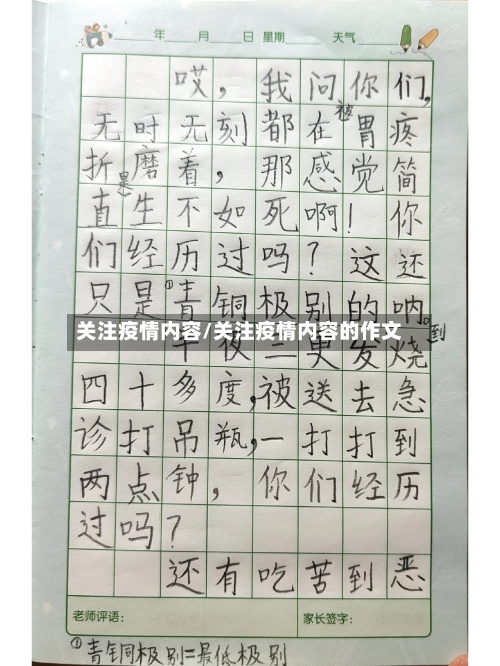 年 月 日 星期 天气
哎，我问你们，
无时无刻都在被胃疼
折磨着，那感觉简
直是生不如死啊！你
们经历过吗？这还
只是①青铜极别的呐。
关注疫情内容/关注疫情内容的作文
半夜三更发烧到
四十多度，被送去急
诊打吊瓶，一打打到
两点钟，你们经历
过吗？
还有吃苦到恶
老师评语： 家长签字：
①青铜极别=最低极别